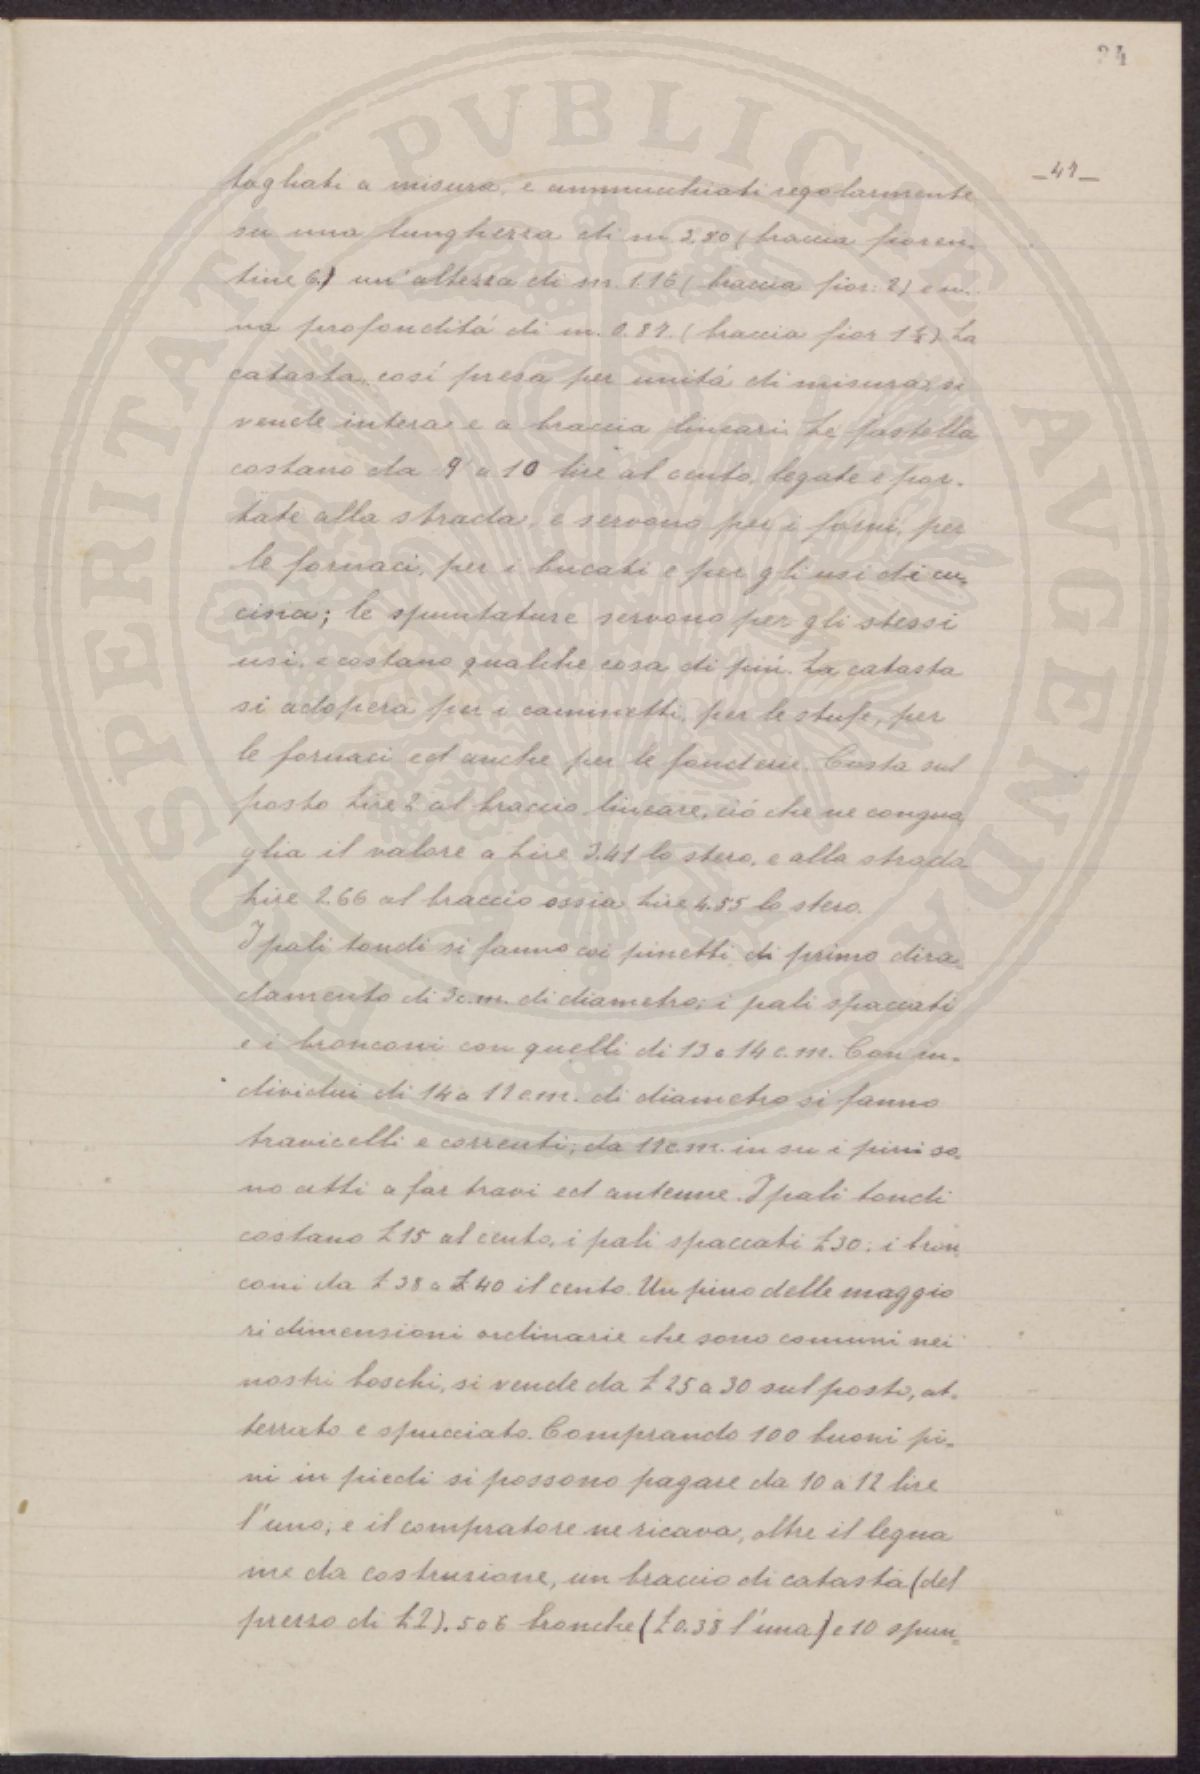 24
_47_
tagliati a misura, e ammucchiati regolarmente
su una lunghezza di m 2.80 (braccia fioren-
tine 6.) un'altezza di m. 1.16 (braccia fior: 2) e u-
na profonditá di m. 0.87. (braccia fior 1½). La
catasta, cosí presa per unitá di misura, si
vende intera e a braccia lineari. Le fastella
costano da 9 a 10 lire al cento, legate e por-
tate alla strada, e servono per i forni, per
le fornaci, per i bucati e per gli usi di cu-
cina; le spuntature servono per gli stessi
usi, e costano qualche cosa di piú. La catasta
si adopera per i caminetti, per le stufe, per
le fornaci ed anche per le fonderie. Costa sul
posto Lire 2 al braccio lineare, ció che ne congua
glia il valore a Lire 3.41 lo stero, e alla strada
Lire 2.66 al braccio ossia Lire 4.55 lo stero.
I pali tondi si fanno coi pinetti di primo dira-
damento di 3 c.m. di diametro; i pali spaccati
e i bronconi con quelli di 13 a 14 c.m. Con in-
dividui di 14 a 17 c.m. di diametro si fanno
travicelli e correnti; da 17 c.m. in su i pini so-
no atti a far travi ed antenne. I pali tondi
costano £ 15 al cento, i pali spaccati £ 30; i bron
coni da £ 38 a £ 40 il cento. Un pino delle maggio
ri dimensioni ordinarie che sono comuni nei
nostri boschi, si vende da £ 25 a 30 sul posto, at-
terrato e spucciato. Comprando 100 buoni pi-
ni in piedi si possono pagare da 10 a 12 lire
l'uno; e il compratore ne ricava, oltre il legna
me da costruzione, un braccio di catasta (del
prezzo di £ 2). 5 o 6 bronche (£ 0.38 l'una) e 10 spun-
PVBLICAE AVGENDAE
PROSPERITATI